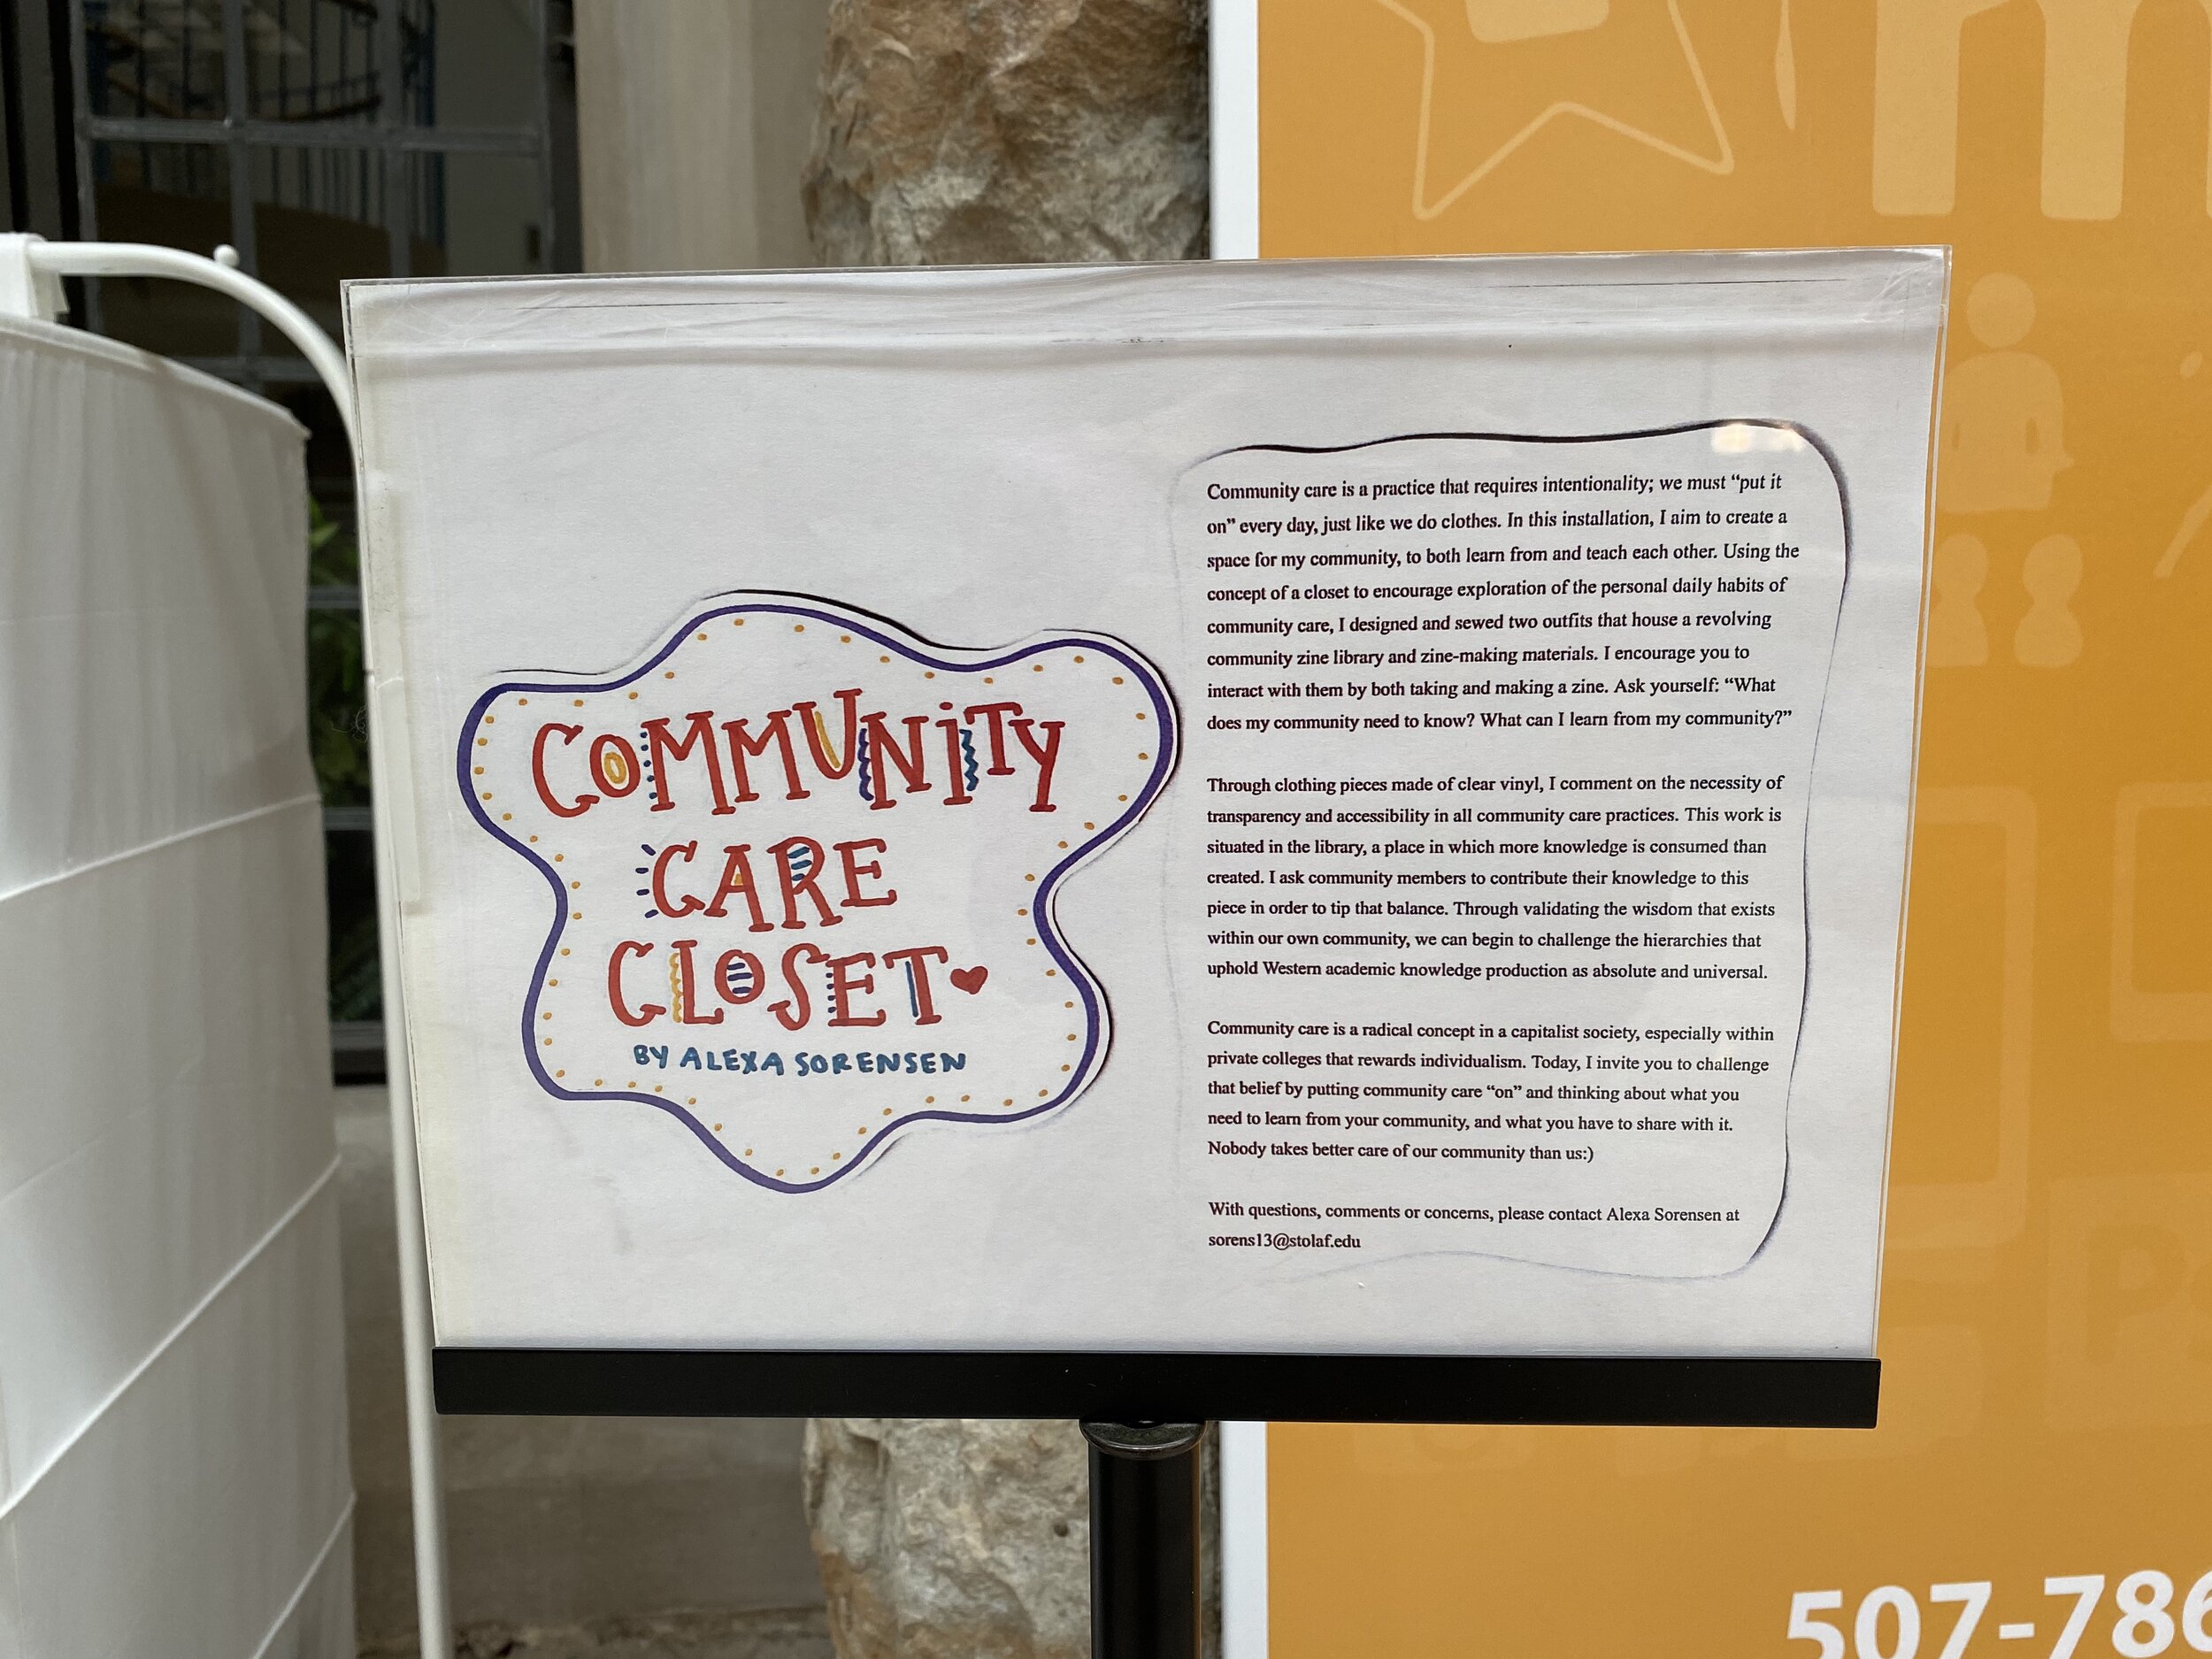 COMMUNITY
CARE
CLOSET
BY ALEXA SORENSEN
Community care is a practice that requires intentionality; we must “put it
on” every day, just like we do clothes. In this installation, I aim to create a
space for my community, to both learn from and teach each other. Using the
concept of a closet to encourage exploration of the personal daily habits of
community care, I designed and sewed two outfits that house a revolving
community zine library and zine-making materials. I encourage you to
interact with them by both taking and making a zine. Ask yourself: “What
does my community need to know? What can I learn from my community?”
Through clothing pieces made of clear vinyl, I comment on the necessity of
transparency and accessibility in all community care practices. This work is
situated in the library, a place in which more knowledge is consumed than
created. I ask community members to contribute their knowledge to this
piece in order to tip that balance. Through validating the wisdom that exists
within our own community, we can begin to challenge the hierarchies that
uphold Western academic knowledge production as absolute and universal.
Community care is a radical concept in a capitalist society, especially within
private colleges that rewards individualism. Today, I invite you to challenge
that belief by putting community care “on” and thinking about what you
need to learn from your community, and what you have to share with it.
Nobody takes better care of our community than us:)
With questions, comments or concerns, please contact Alexa Sorensen at
sorens13@stolaf.edu
507-786